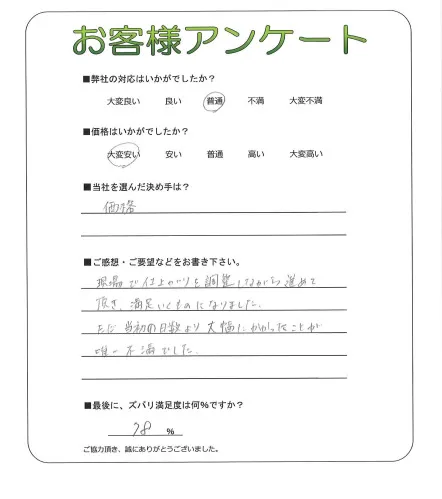 お客様アンケート
■弊社の対応はいかがでしたか？
大変良い 良い 普通 不満 大変不満
■価格はいかがでしたか？
大変安い 安い 普通 高い 大変高い
■当社を選んだ決め手は？
価格
■ご感想・ご要望などをお書き下さい。
現場で仕上がりを調整しながら進めて
頂き、満足いくものになりました。
ただ当初の日数より大幅にかかったことが
唯一不満でした。
■最後に、ズバリ満足度は何％ですか？
78 ％
ご協力頂き、誠にありがとうございました。